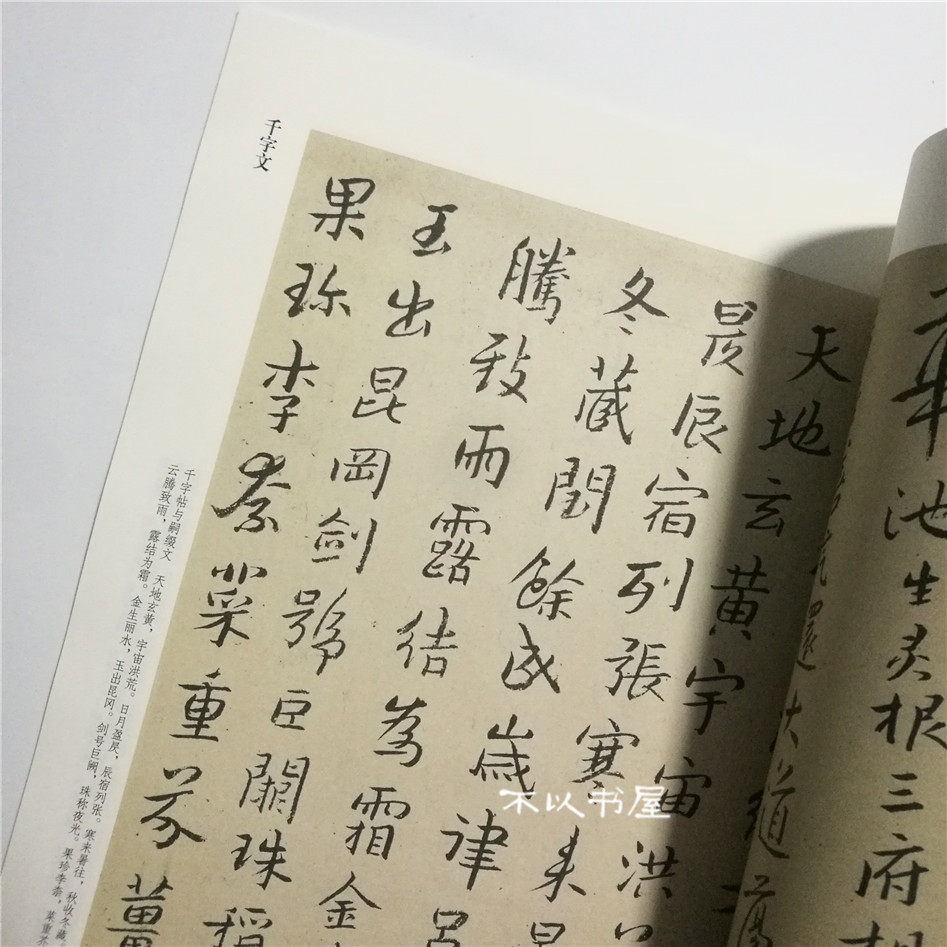 華池生灵根三府
還大道
天地玄黄宇宙洪
昃辰宿列張寒来暑
冬藏閏餘成歲律吕
騰致雨露结為霜金
玉出昆岡劍號巨闕珠稱
果珎李柰菜重芥薑
千字文
千字帖与嗣缀文 天地玄黄，宇宙洪荒。日月盈昃，辰宿列张。寒来暑往，秋收冬藏
云腾致雨，露结为霜。金生丽水，玉出昆冈。剑号巨阙，珠称夜光。果珍李柰，菜重芥
不以书屋